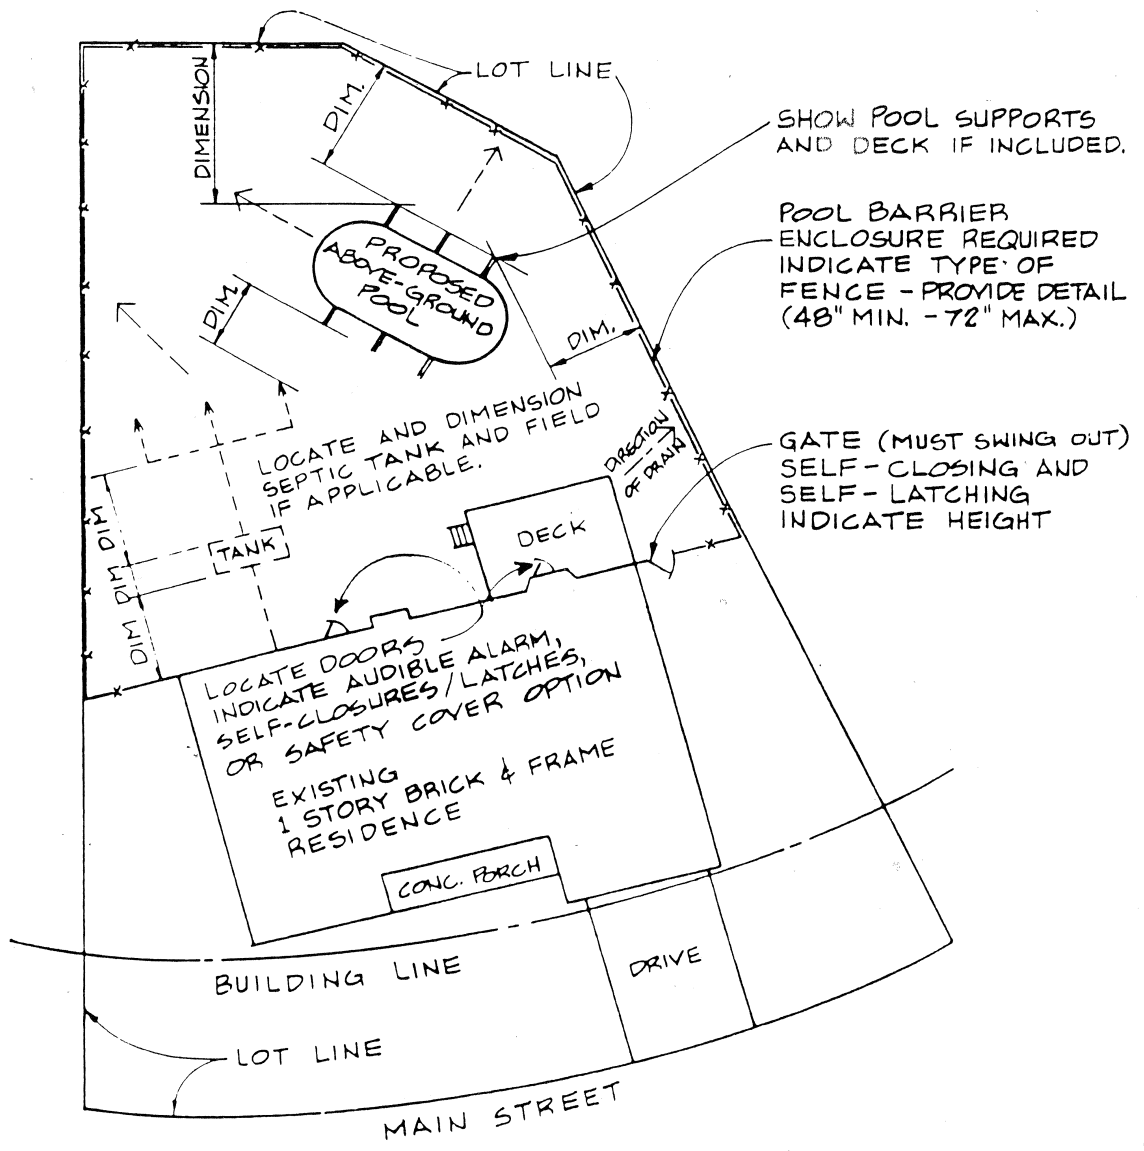 LOT LINE
DIMENSION
DIM.
SHOW POOL SUPPORTS
AND DECK IF INCLUDED.
POOL BARRIER
ENCLOSURE REQUIRED
INDICATE TYPE OF
FENCE - PROVIDE DETAIL
(48" MIN. - 72" MAX.)
PROPOSED
ABOVE-GROUND
POOL
DIM.
DIM.
LOCATE AND DIMENSION
SEPTIC TANK AND FIELD
IF APPLICABLE.
DIRECTION
OF DRAIN
GATE (MUST SWING OUT)
SELF-CLOSING AND
SELF-LATCHING
INDICATE HEIGHT
DIM
DIM
DIM
TANK
DECK
LOCATE DOORS
INDICATE AUDIBLE ALARM,
SELF-CLOSURES/LATCHES,
OR SAFETY COVER OPTION
EXISTING
1 STORY BRICK & FRAME
RESIDENCE
CONC. PORCH
BUILDING LINE
DRIVE
LOT LINE
MAIN STREET